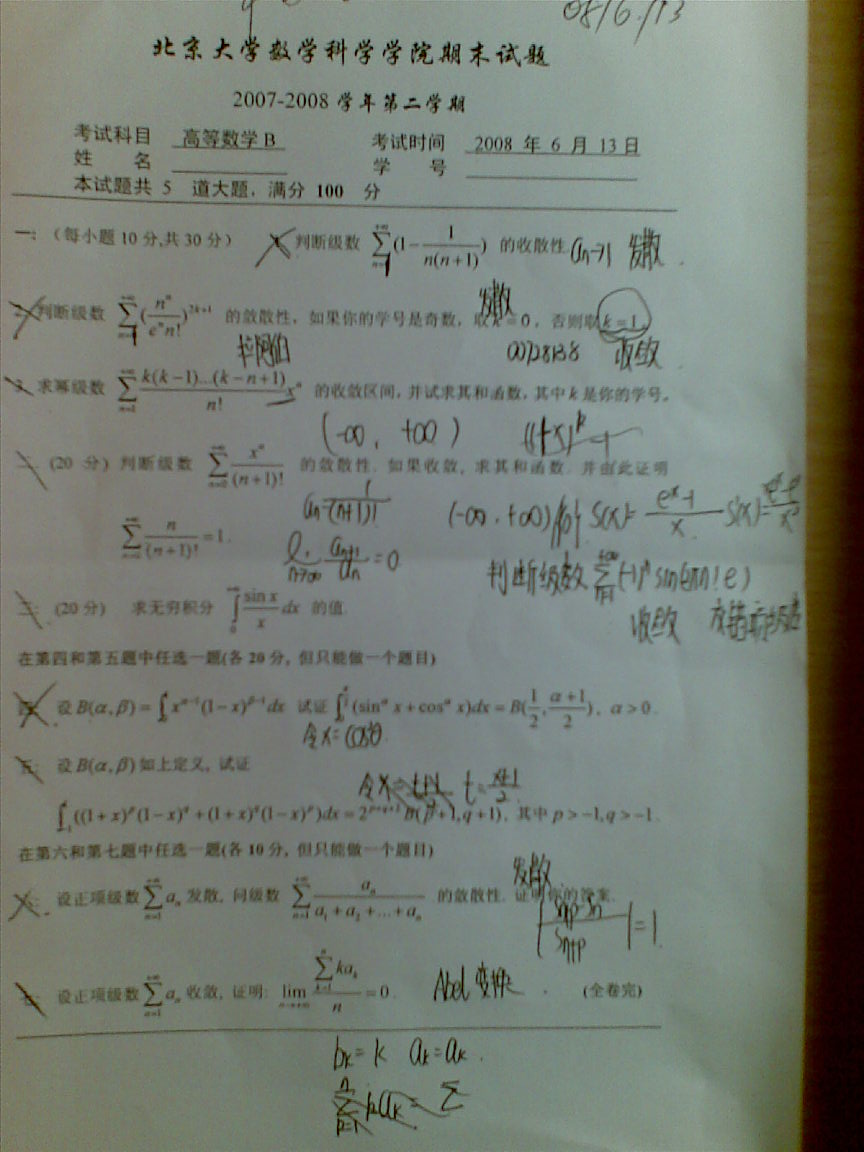 08/6/13
北京大学数学科学学院期末试题
2007-2008 学年第二学期
考试科目 高等数学B 考试时间 2008 年 6 月 13日
姓 名 学 号
本试题共 5 道大题,满分 100 分
一:(每小题10分,共30分) 1. 判断级数 $\sum_{n=1}^{+\infty}(1-\frac{1}{n(n+1)})$ 的收敛性. $a_n→1$ 发散
发散
2. 判断级数 $\sum_{n=1}^{+\infty}(\frac{n^n}{e^n n!})^{2k+1}$ 的敛散性,如果你的学号是奇数,取 k=0,否则取 k=1.
00728138 收敛
3. 求幂级数 $\sum_{n=1}^{+\infty}\frac{k(k-1)...(k-n+1)}{n!}x^n$ 的收敛区间,并试求其和函数,其中 k 是你的学号。
(-∞, +∞) $(1+x)^k-1$
二:(20 分) 判断级数 $\sum_{n=0}^{+\infty}\frac{x^n}{(n+1)!}$ 的敛散性. 如果收敛, 求其和函数. 并由此证明
$a_n=\frac{1}{(n+1)!}$ (-∞, +∞) $S(x)=\frac{e^x-1}{x}$
$\sum_{n=0}^{+\infty}\frac{n}{(n+1)!}=1.$
$\lim_{n→∞}\frac{a_{n+1}}{a_n}=0$
判断级数 $\sum_{n=1}^{+\infty}(-1)^n\sin(2\pi n!e)$
收敛
三:(20分) 求无穷积分 $\int_0^{+\infty}\frac{\sin x}{x}dx$ 的值.
在第四和第五题中任选一题(各20分, 但只能做一个题目)
四: 设 $B(\alpha,\beta)=\int_0^1 x^{\alpha-1}(1-x)^{\beta-1}dx$ 试证 $\int_0^{\frac{\pi}{2}}(\sin^\alpha x+\cos^\alpha x)dx=B(\frac{1}{2},\frac{\alpha+1}{2}),\ \alpha>0.$
令x=cosθ
五: 设 $B(\alpha,\beta)$ 如上定义, 试证
令 $t=\frac{x+1}{2}$
$\int_{-1}^1((1+x)^p(1-x)^q+(1+x)^q(1-x)^p)dx=2^{p+q+2}B(p+1,q+1)$, 其中 p>-1,q>-1.
在第六和第七题中任选一题(各10分, 但只能做一个题目)
发散
六: 设正项级数 $\sum_{n=1}^{+\infty}a_n$ 发散, 问级数 $\sum_{n=1}^{+\infty}\frac{a_n}{a_1+a_2+...+a_n}$ 的敛散性. 证明你的答案.
$|\frac{S_{n+p}-S_n}{S_{n+p}}|=1$
七: 设正项级数 $\sum_{n=1}^{+\infty}a_n$ 收敛, 证明: $\lim_{n→+\infty}\frac{\sum_{k=1}^{n}ka_k}{n}=0.$ Abel 变换 (全卷完)
$b_k=k$ $a_k=a_k.$
$\sum_{k=1}^{n}ka_k=\sum$